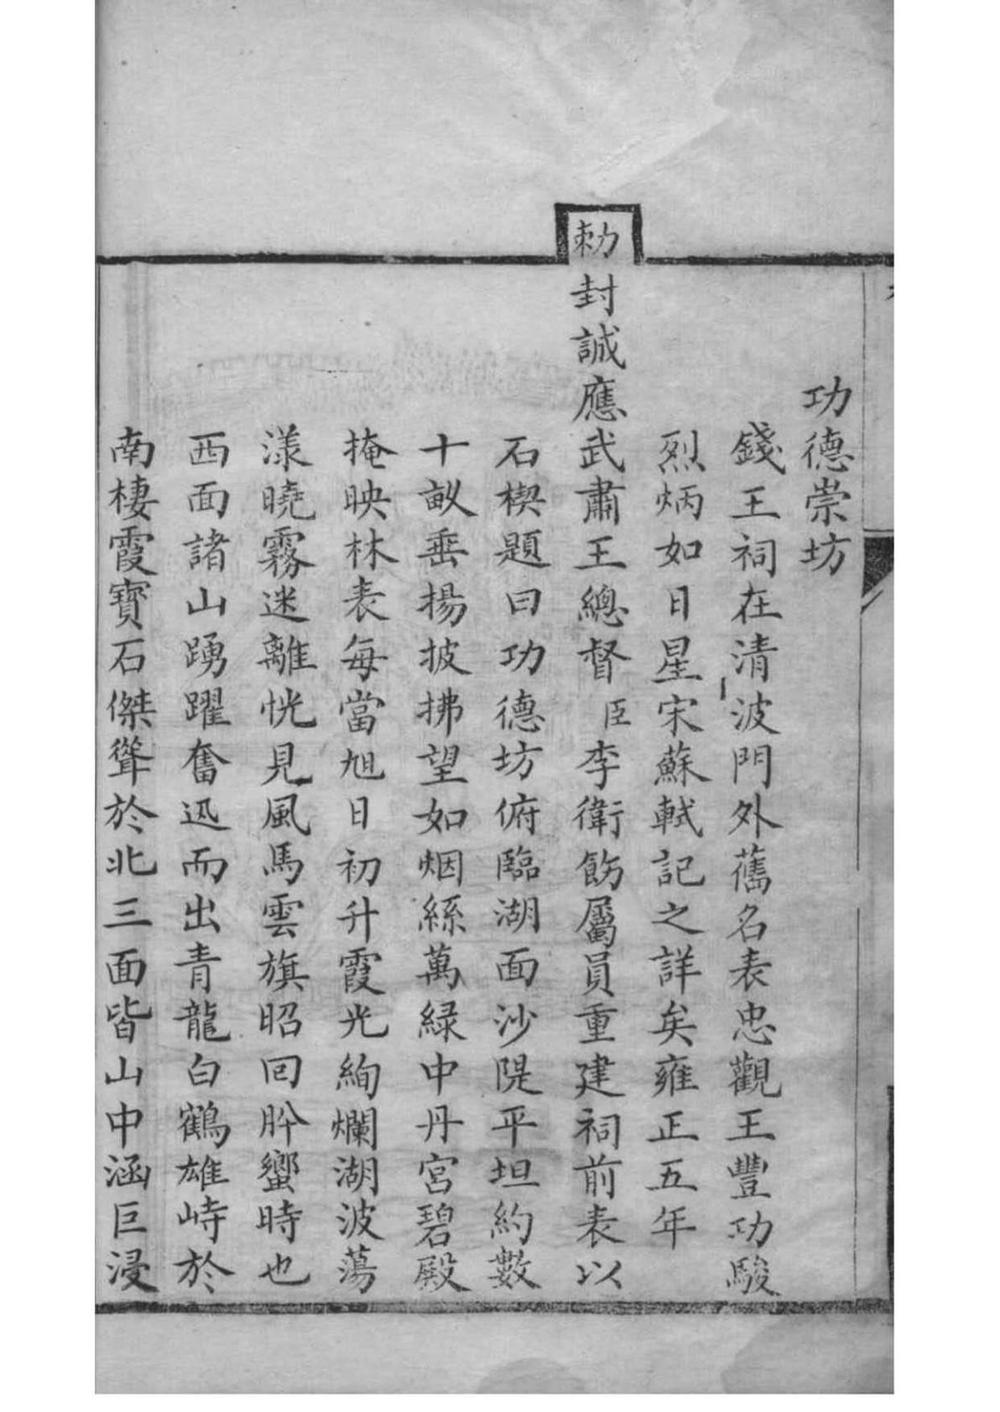 功德崇坊
錢王祠在清波門外舊名表忠觀王豐功駿
烈炳如日星宋蘇軾記之詳矣雍正五年
勅封誠應武肅王總督臣李衛飭屬員重建祠前表以
石楔題曰功德坊俯臨湖面沙隄平坦約數
十畝垂楊披拂望如烟絲萬綠中丹宮碧殿
掩映林表每當旭日初升霞光絢爛湖波蕩
漾曉霧迷離恍見風馬雲旗昭回肸蠁時也
西面諸山踴躍奮迅而出青龍白鶴雄峙於
南棲霞寶石傑聳於北三面皆山中涵巨浸